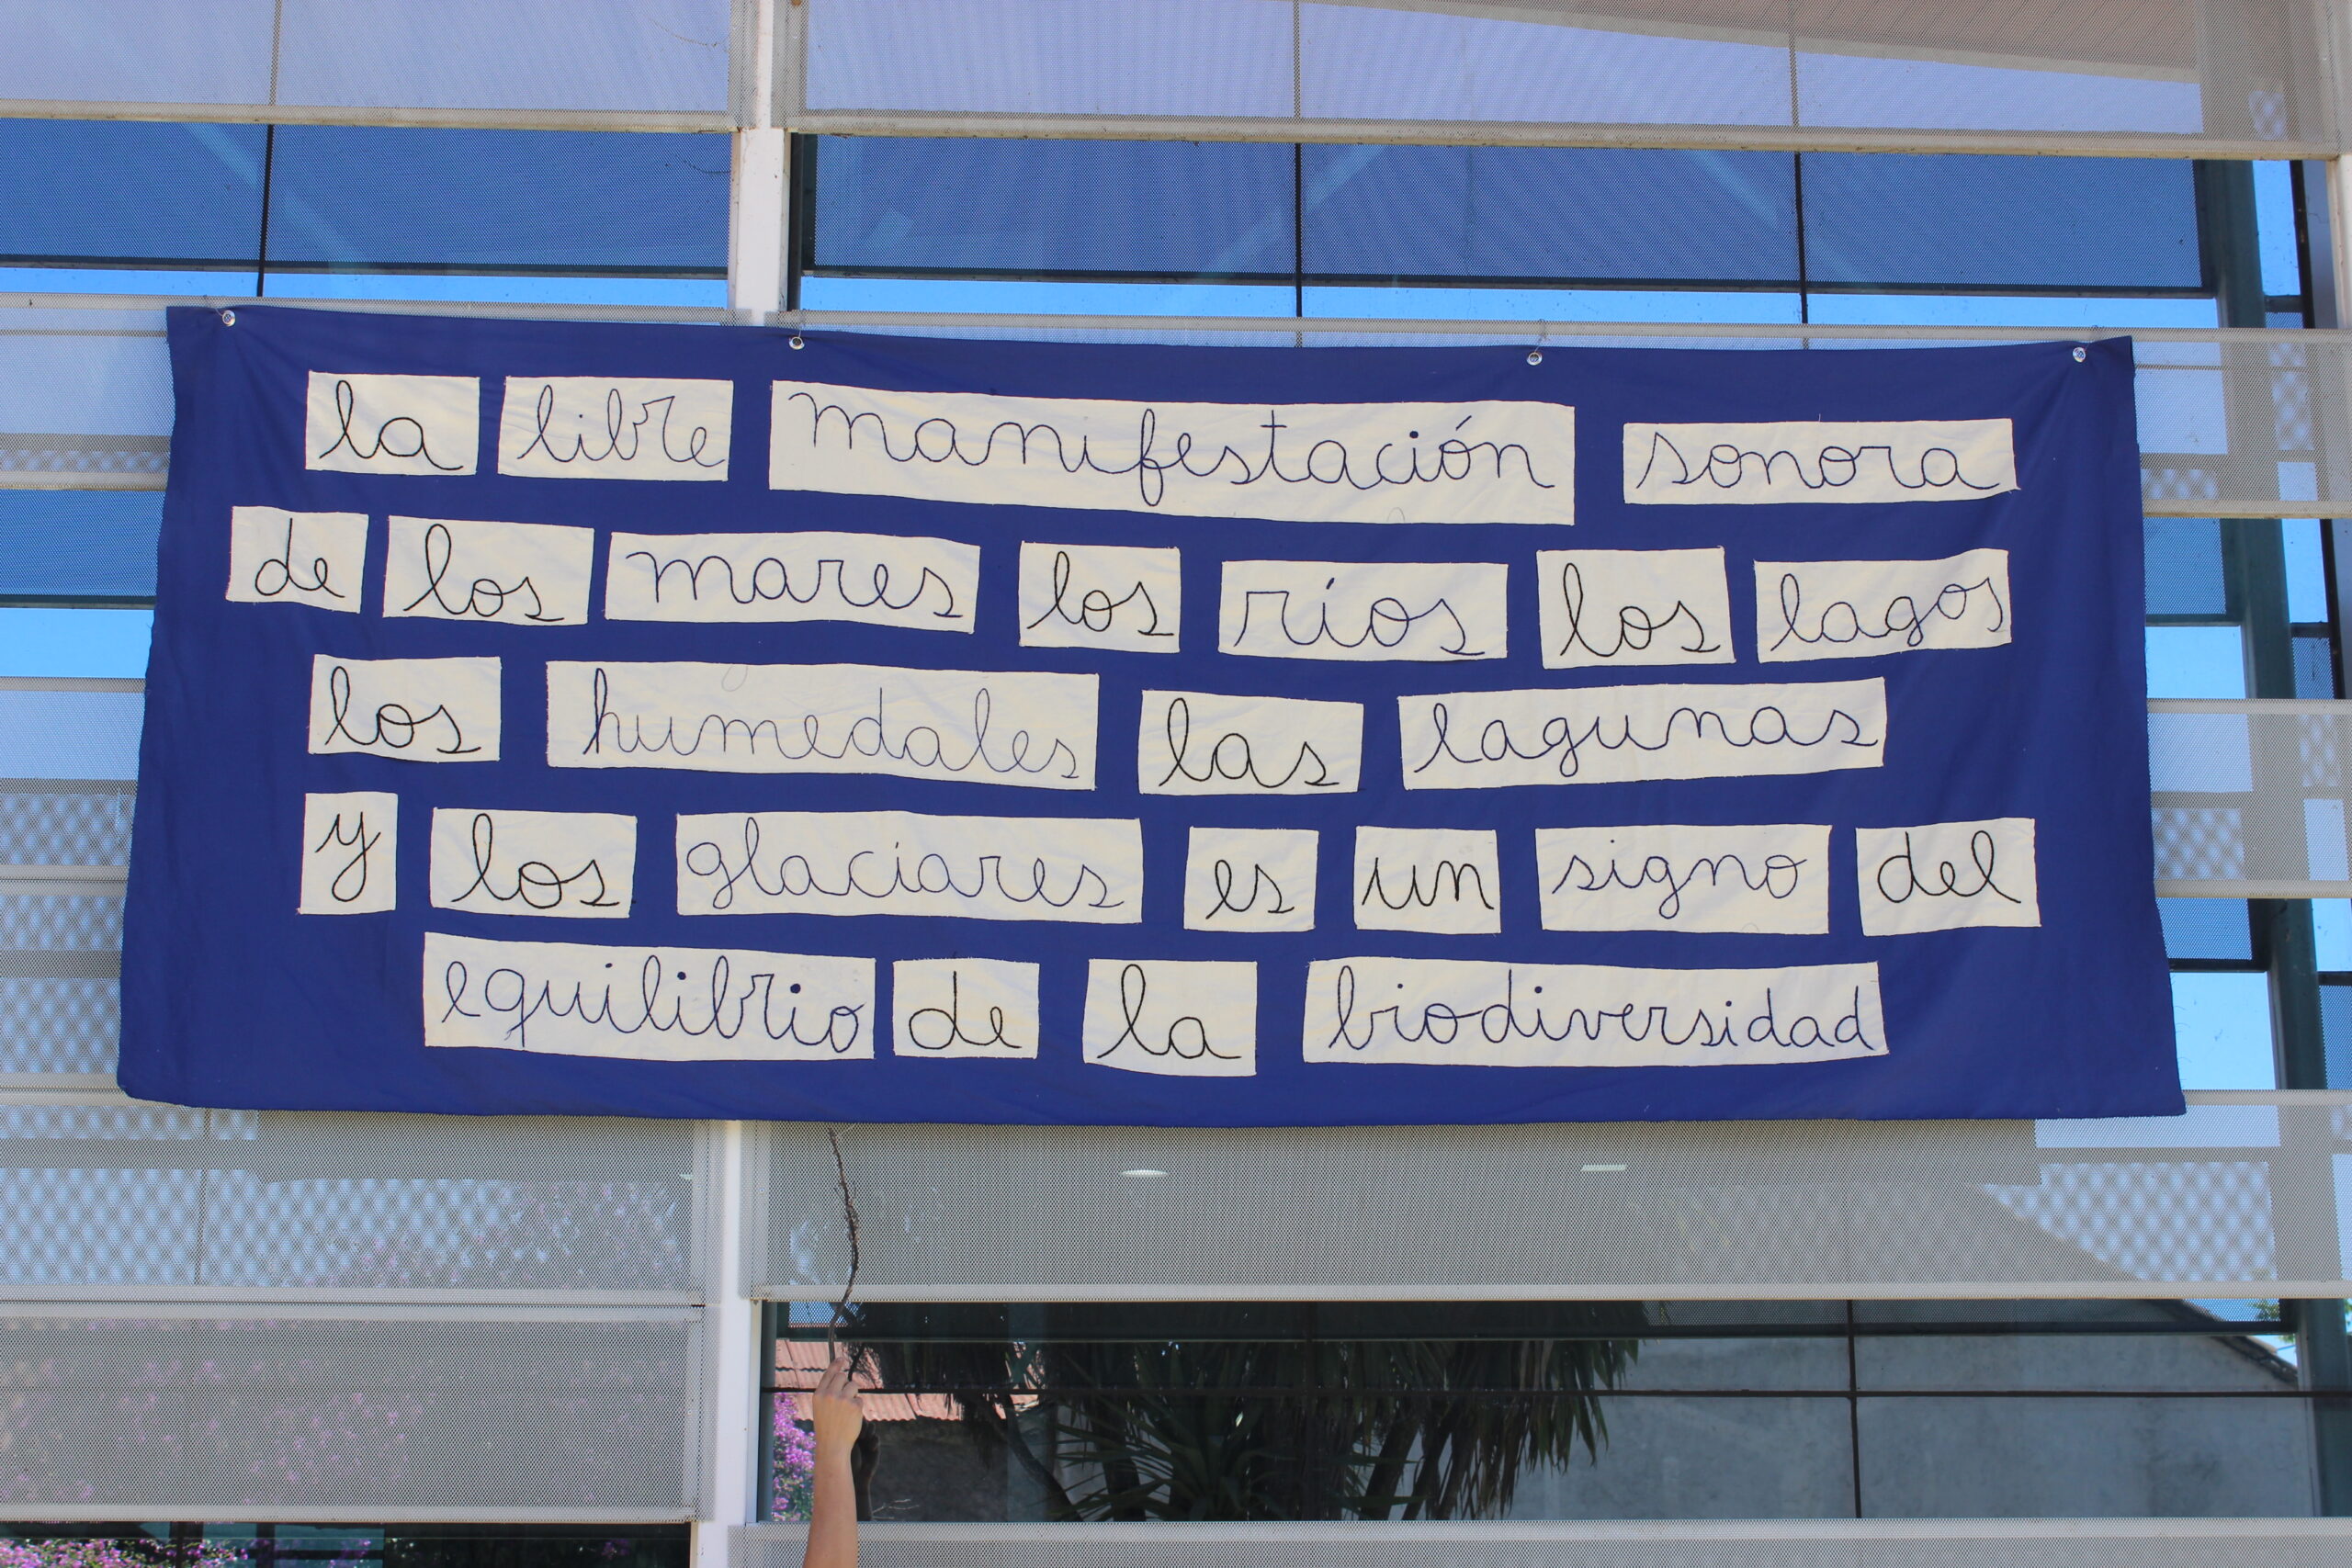 la libre manifestación sonora
de los mares los ríos los lagos
los humedales las lagunas
y los glaciares es un signo del
equilibrio de la biodiversidad